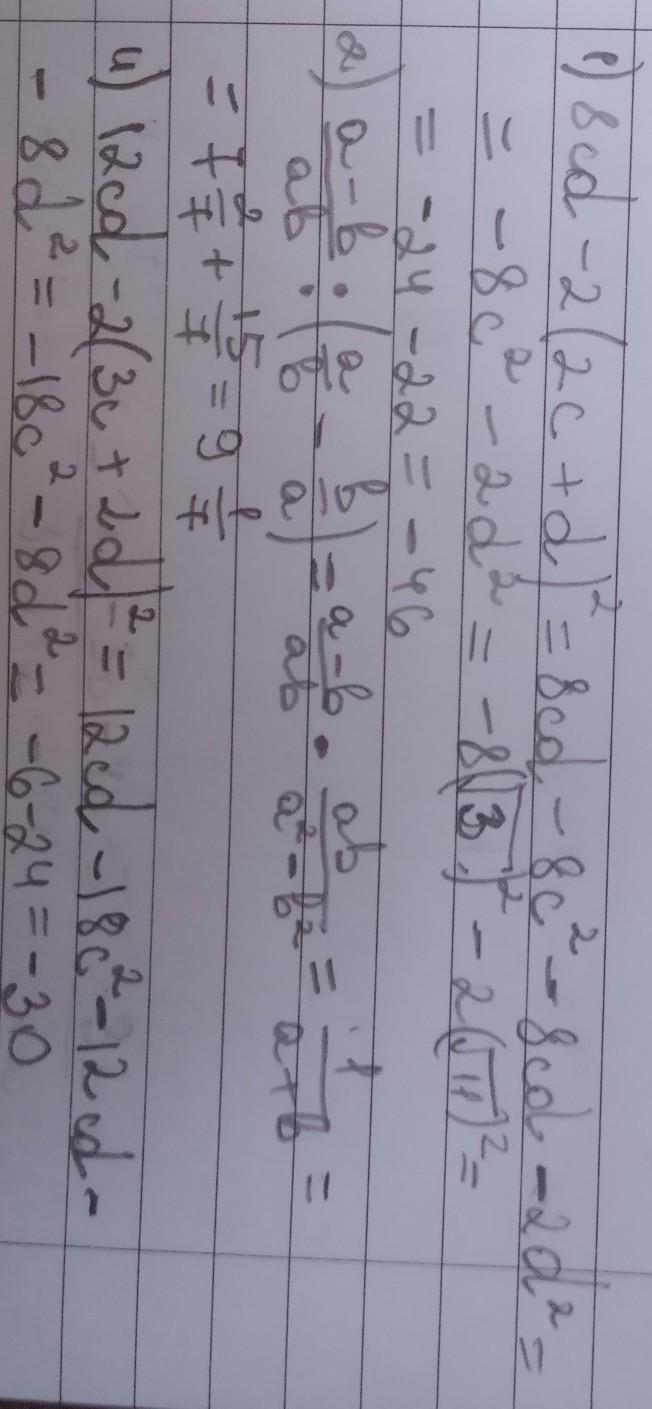 1) 8cd - 2(2c + d)² = 8cd - 8c² - 8cd - 2d² =
= - 8c² - 2d² = - 8(√3)² - 2(√11)² =
= - 24 - 22 = - 46
2) a-b/ab : (a/b - b/a) = a-b/ab · ab/a²-b² = 1/a+b =
= 7 2/7 + 15/7 = 9 1/7
4) 12cd - 2(3c + 2d)² = 12cd - 18c² - 12cd -
- 8d² = - 18c² - 8d² = - 6 - 24 = - 30